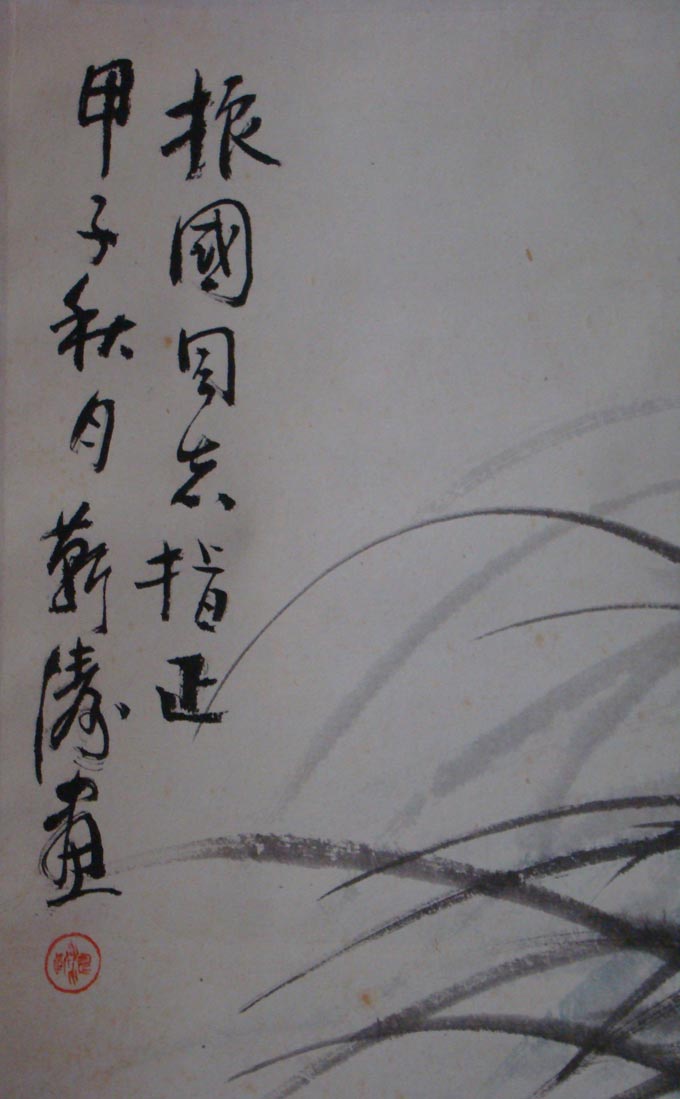 振國同志指正
甲子秋月靳濤畫